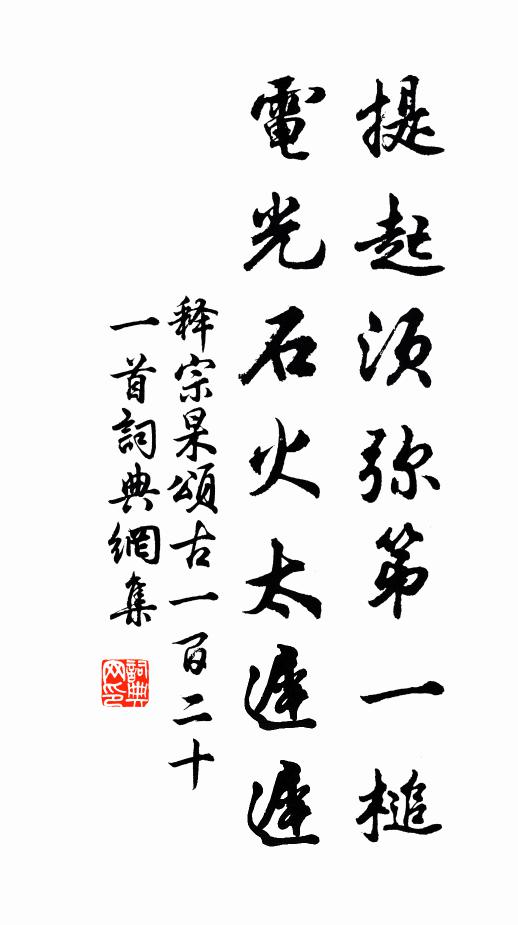 提起須弥第一槌
電光石火太遲遲
释宗杲頌古一百二十
一首詞典網集
詞典网印